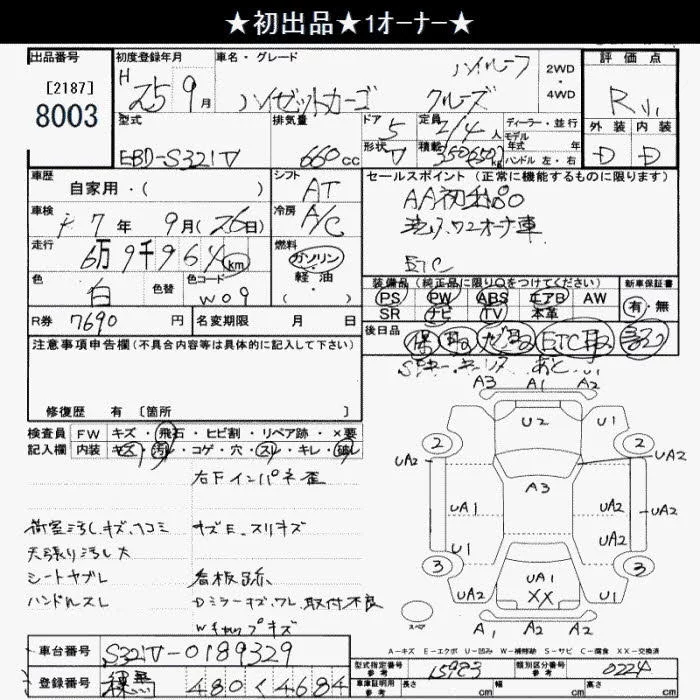 ★初出品★1オーナー★
出品番号
[2187]
8003
初度登録年月
H 25 9月
車名・グレード
ハイゼットカーゴ
ハイルーフ
クルーズ
2WD
・
4WD
評価点
R
外装 内装
D D
型式
EBD-S321V
排気量
660cc
ドア 5
形状 V
定員 2/4 人
積載 350(250)kg
ディーラー・並行
モデル
年式 年
ハンドル 左・右
車歴
自家用・( )
シフト
AT
セールスポイント(正常に機能するものに限ります)
AA初出品
1オーナ車
ETC
車検
7年 9月(26日)
冷房
A/C
走行
6万9千964km
燃料
ガソリン
軽・油
・( )
色
白
色替
色コード
W09
装備品(純正品に限り○をつけてください)
新車保証書
PS PW ABS エアB AW
SR ナビ TV 本革
有・無
R券 7690円
名変期限 月 日
後日品
保 取 ナビ取 ETC取 記
注意事項申告欄(不具合内容等は具体的に記入して下さい)
修復歴 有 [箇所 ]
検査員
記入欄
FW キズ・飛石・ヒビ割・リペア跡・×要
内装 キズ・汚れ・コゲ・穴・スレ・キレ・破レ
右Fインパネ歪
荷室汚レ、キズ、凹コミ
キズE、スリキズ
天張り汚レ大
シートヤブレ
看板跡
ハンドルスレ
Dミラーキズ、ワレ、取付不良
Wキャップキズ
A3 A1 A2
U2 U1
2 2
UA2 UA2
A3
UA1 UA2 UA2
U1 UA2
3 3
UA2 UA1 U2
XX
スペア
A1 A2 A2
A-キズ E-エクボ U-凹み W-補修跡 S-サビ C-腐食 XX-交換済
車台番号 S321V-0189329
登録番号 練馬 480 く 4684
型式指定番号
参考 15983
類別区分番号
参考 0224
車庫証明用
参考
長さ cm
幅 cm
高さ cm